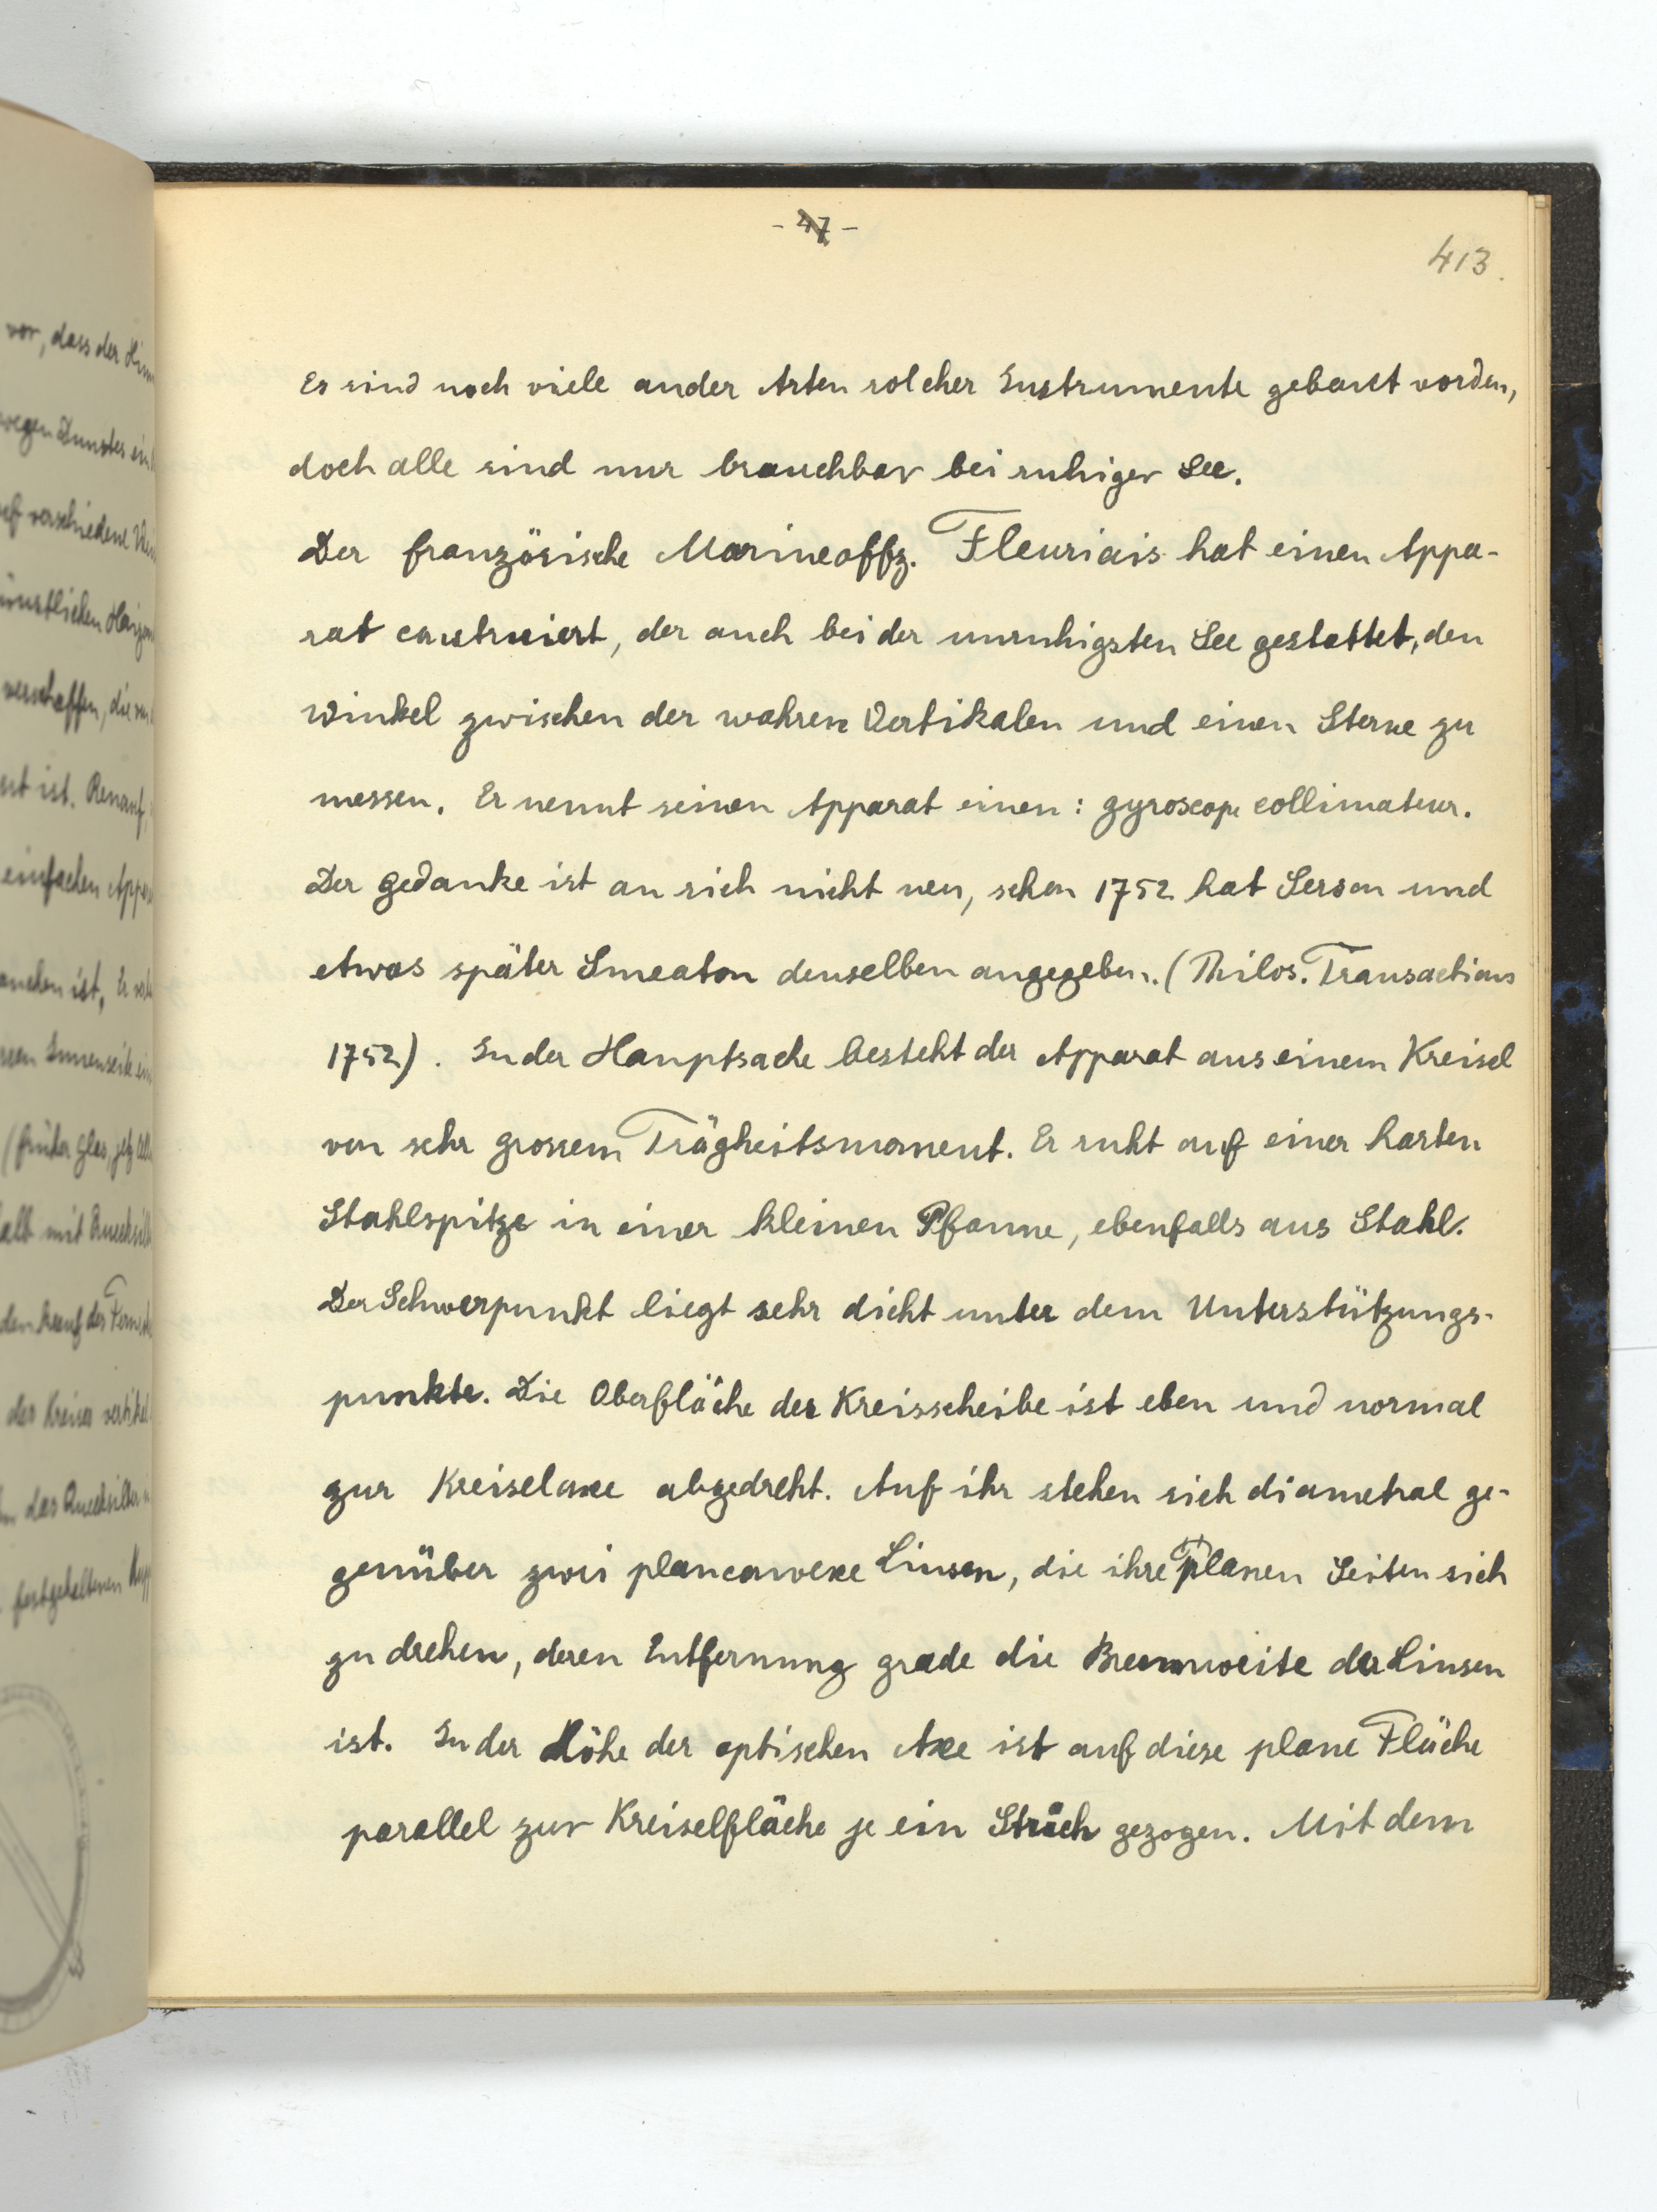 - 47 -
413.
Es sind noch viele ander Arten solcher Instrumente gebaut worden,
doch alle sind nur brauchbar bei ruhiger See.
Der französische Marineoffz. Fleuriais hat einen Appa-
rat construiert, der auch bei der unruhigsten See gestattet, den
Winkel zwischen der wahren Vertikalen und einen Sterne zu
messen. Er nennt seinen Apparat einen: gyroscope collimateur.
Der Gedanke ist an sich nicht neu, schon 1752 hat Serson und
etwas später Smeaton denselben angegeben. (Philos. Transactions
1752). In der Hauptsache besteht der Apparat aus einem Kreisel
von sehr grossem Trägheitsmoment. Er ruht auf einer harten
Stahlspitze in einer kleinen Pfanne, ebenfalls aus Stahl.
Der Schwerpunkt liegt sehr dicht unter dem Unterstützungs-
punkte. Die Oberfläche der Kreisscheibe ist eben und normal
zur Kreiselaxe abgedreht. Auf ihr stehen sich diametral ge-
genüber zwei planconvexe Linsen, die ihre planen Seiten sich
zu drehen, deren Entfernung grade die Brennweite der Linsen
ist. In der Höhe der optischen Axe ist auf diese plane Fläche
parallel zur Kreiselfläche je ein Strich gezogen. Mit dem
vor, dass der
wegen Dunstes
verschiedene
verschaffen, die
ist. Renauf,
einfachen
ist, Er
Innenseite
(früher Glas, jetzt
mit
den Knauf des
der Kreises
das Quecksilber
festgehaltenen